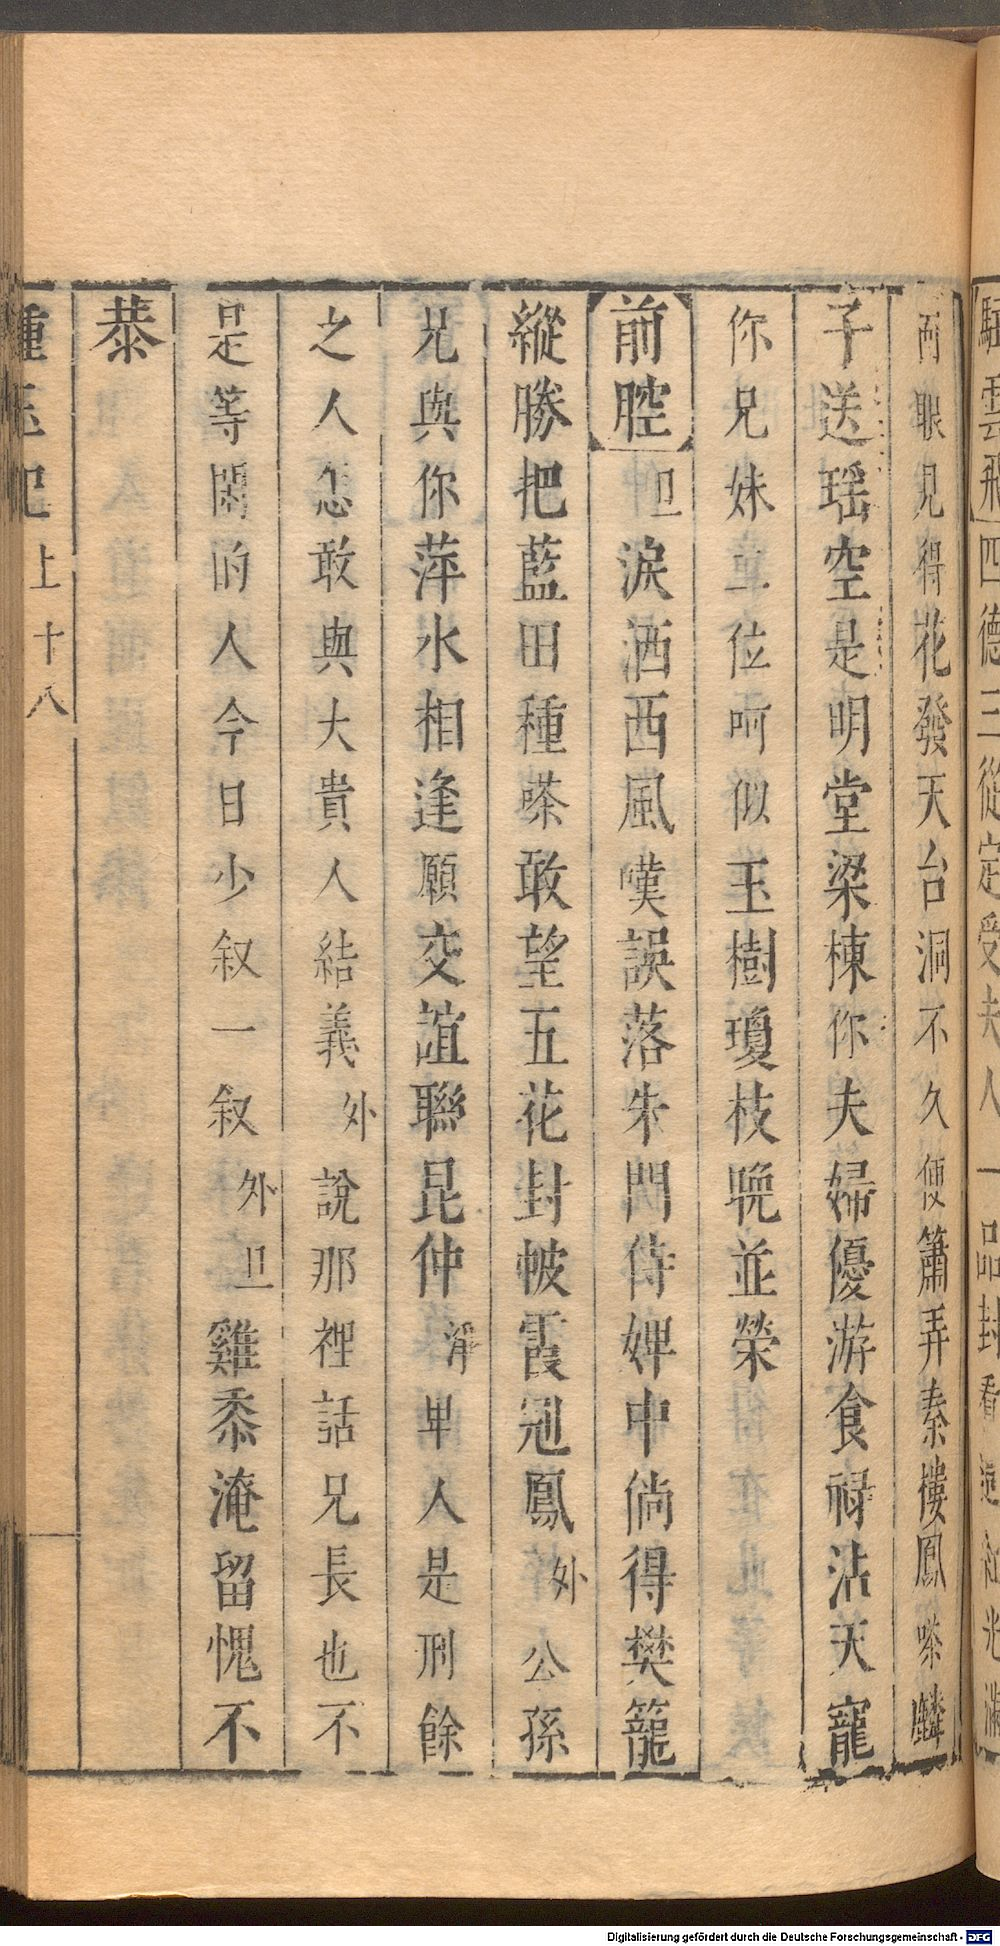 駐雲飛四德三從定受夫人一品封看
而眼見得花發天台洞不久便簫弄秦樓鳳嗏麟
子送瑶空是明堂梁棟你夫婦優游食禄沾天寵
你兄妹位呵似玉樹瓊枝晩並榮
前腔 旦淚洒西風嘆誤落朱門侍婢中倘得樊籠
縱勝把藍田種嗏敢望五花封帔霞冠鳳外公孫
兄與你萍水相逢願交誼聯昆仲淨卑人是刑餘
之人怎敢與大貴人結義外說那裡話兄長也不
是等閑的人今日少叙一叙外旦雞黍淹留愧不
恭
種玉記 上 十八
Digitalisierung gefördert durch die Deutsche Forschungsgemeinschaft - DFG